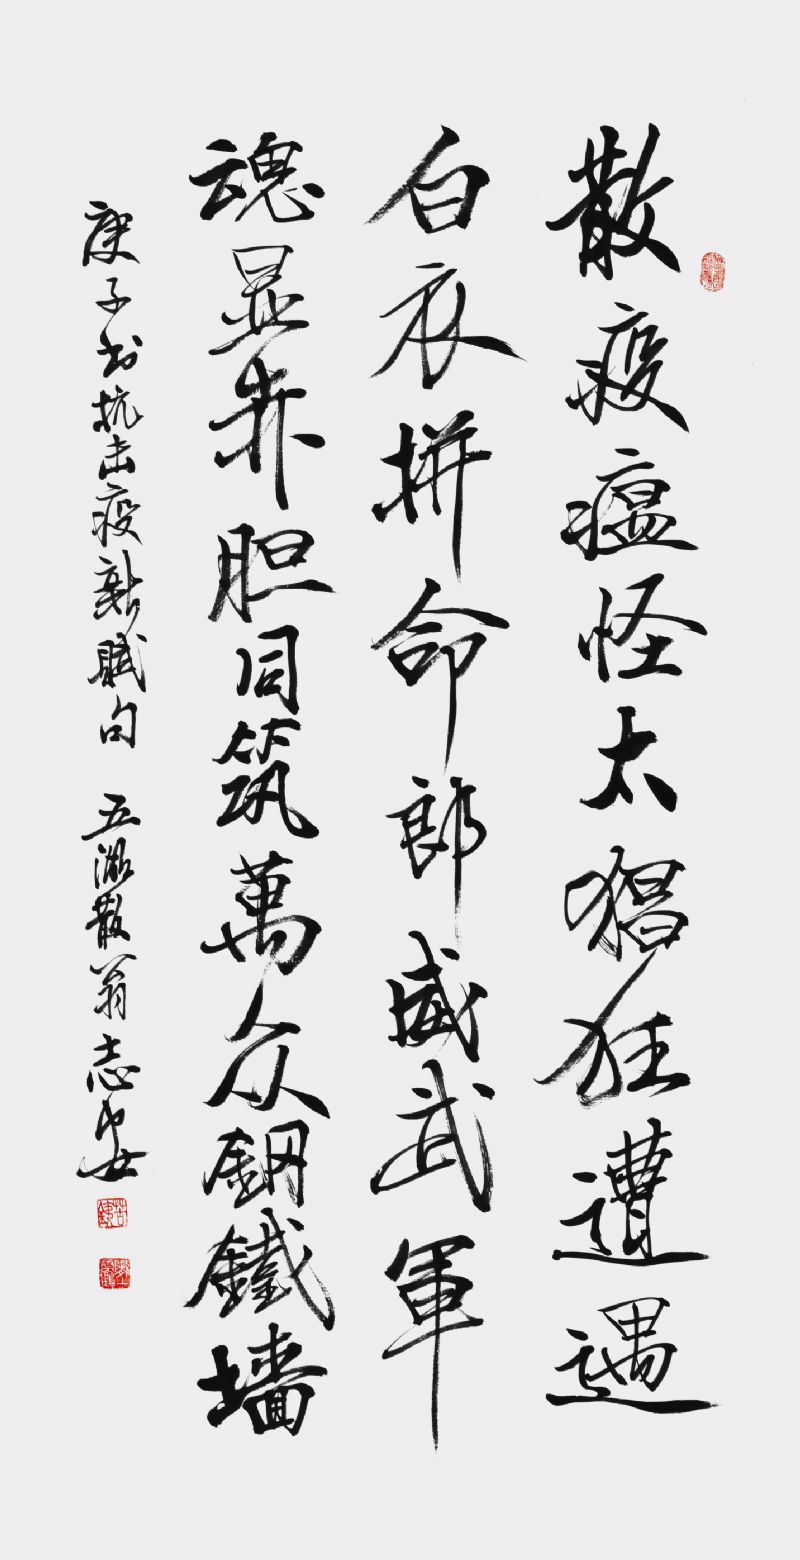 散疫瘟怪太猖狂遭遇
白衣拼命郎威武軍
魂显赤胆同筑萬众鋼鐵墙
庚子书抗击疫新賦句 五溪散翁志安